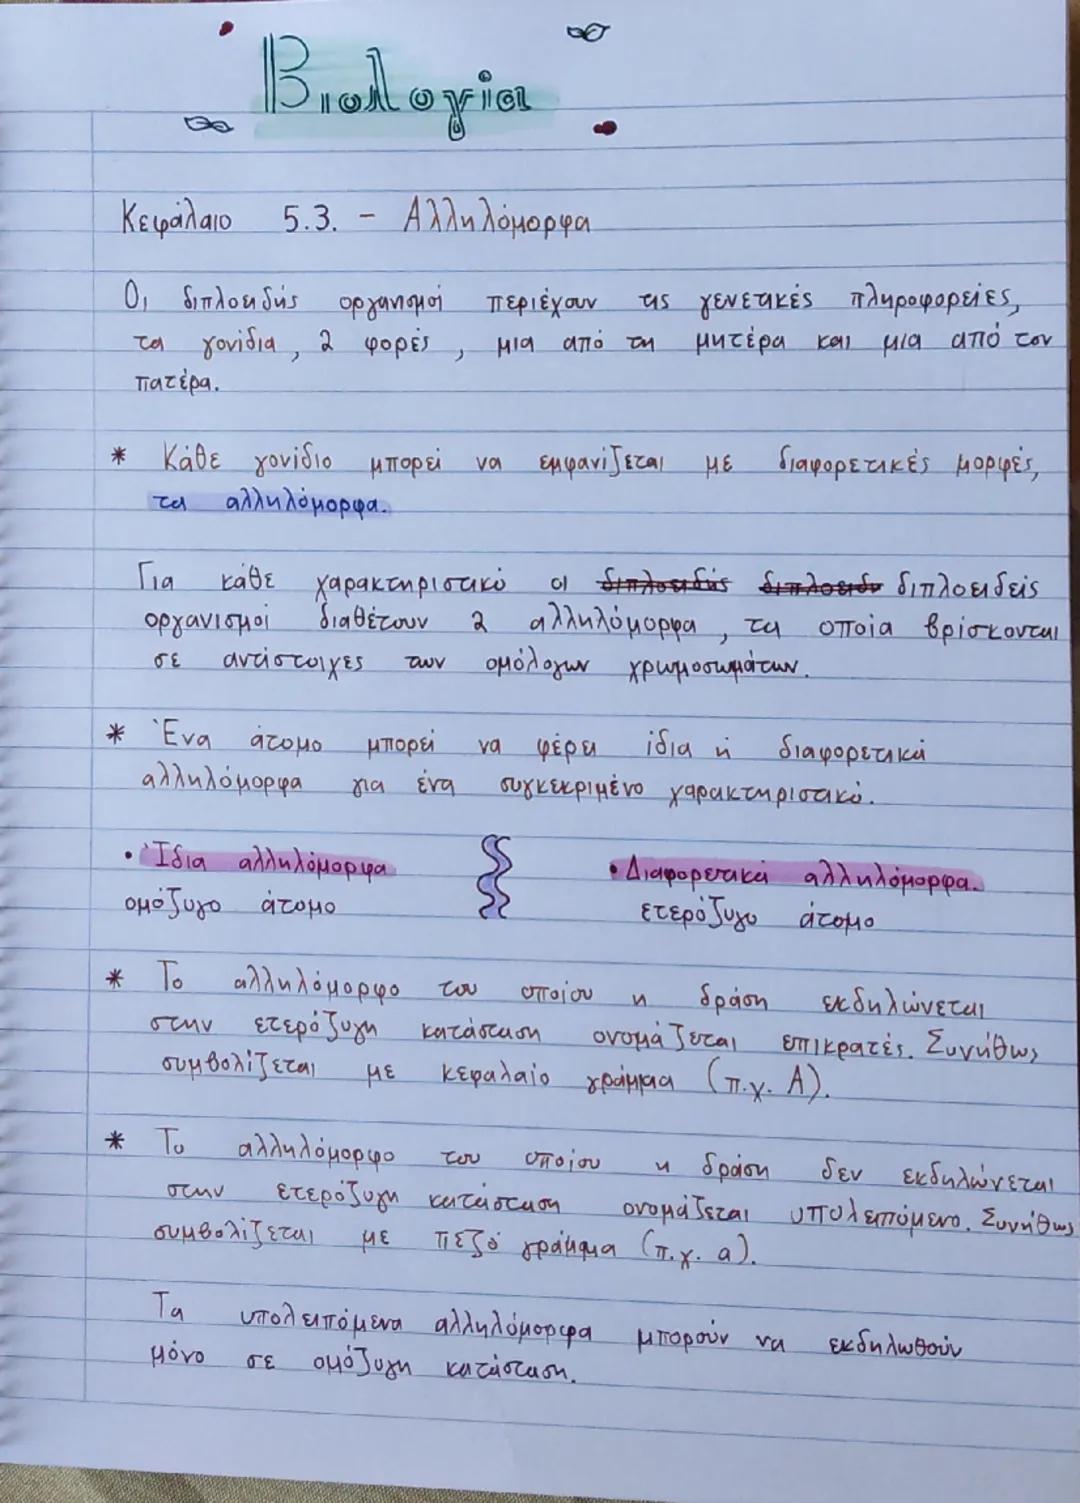 Βιολογία
Κεφάλαιο 5.3. - Αλληλόμορφα
Οι διπλοειδής οργανισμοί περιέχουν τις γενετικές πληροφορείες,
τα γονίδια, 2 φορές, μια από τη μητέρα και μια από τον
πατέρα.
* Κάθε γονίδιο μπορεί να εμφανίζεται με διαφορετικές μορφές,
τα αλληλόμορφα.
Για κάθε χαρακτηριστικό οι διπλοειδείς
οργανισμοί διαθέτουν 2 αλληλόμορφα, τα οποία βρίσκονται
σε αντίστοιχες των ομόλογων χρωμοσωμάτων.
* Ένα άτομο μπορεί να φέρει ίδια ή διαφορετικά
αλληλόμορφα για ένα συγκεκριμένο χαρακτηριστικό.
• Ίδια αλληλόμορφα
ομόζυγο άτομο
• Διαφορετικά αλληλόμορφα.
ετερόζυγο άτομο
* Το αλληλόμορφο του οποίου η δράση εκδηλώνεται
στην ετερόζυγη κατάσταση ονομάζεται επικρατές. Συνήθως
συμβολίζεται με κεφαλαίο γράμμα (π.χ. Α).
* Το αλληλόμορφο του οποίου η δράση δεν εκδηλώνεται
στην ετερόζυγη κατάσταση ονομάζεται υπολειπόμενο. Συνήθως
συμβολίζεται με πεζό γράμμα (π.χ. α).
Τα υπολειπόμενα αλληλόμορφα μπορούν να εκδηλωθούν
μόνο σε ομόζυγη κατάσταση.